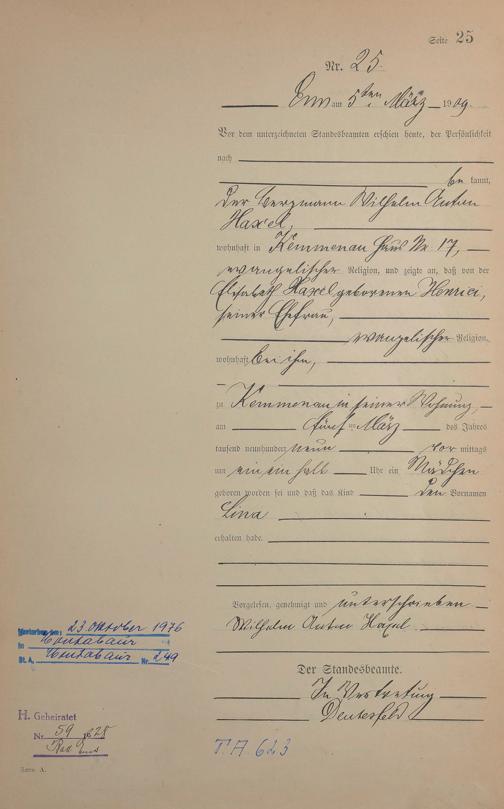 Seite 25
Nr. 25.
Ems am 5ten März 1909.
Vor dem unterzeichneten Standesbeamten erschien heute, der Persönlichkeit
nach
be kannt,
der Bergmann Wilhelm Anton
Haxel,
wohnhaft in Kemmenau Haus Nr. 17,
evangelischer Religion, und zeigte an, daß von der
Elisabeth Haxel geborenen Henrici,
seiner Ehefrau,
evangelischer Religion,
wohnhaft bei ihm,
zu Kemmenau in seiner Wohnung,
am fünf ten März des Jahres
tausend neunhundert neun vor mittags
um ein ein halb Uhr ein Mädchen
geboren worden sei und daß das Kind den Vornamen
Lina
erhalten habe.
Vorgelesen, genehmigt und unterschrieben
Wilhelm Anton Haxel.
Der Standesbeamte.
In Vertretung
Verstorben am: 23. Oktober 1976
in Montabaur
St. A. Montabaur Nr. 249
H. Geheiratet
Nr. 59 1928
Bad Ems
T.A. 623
Form. A.